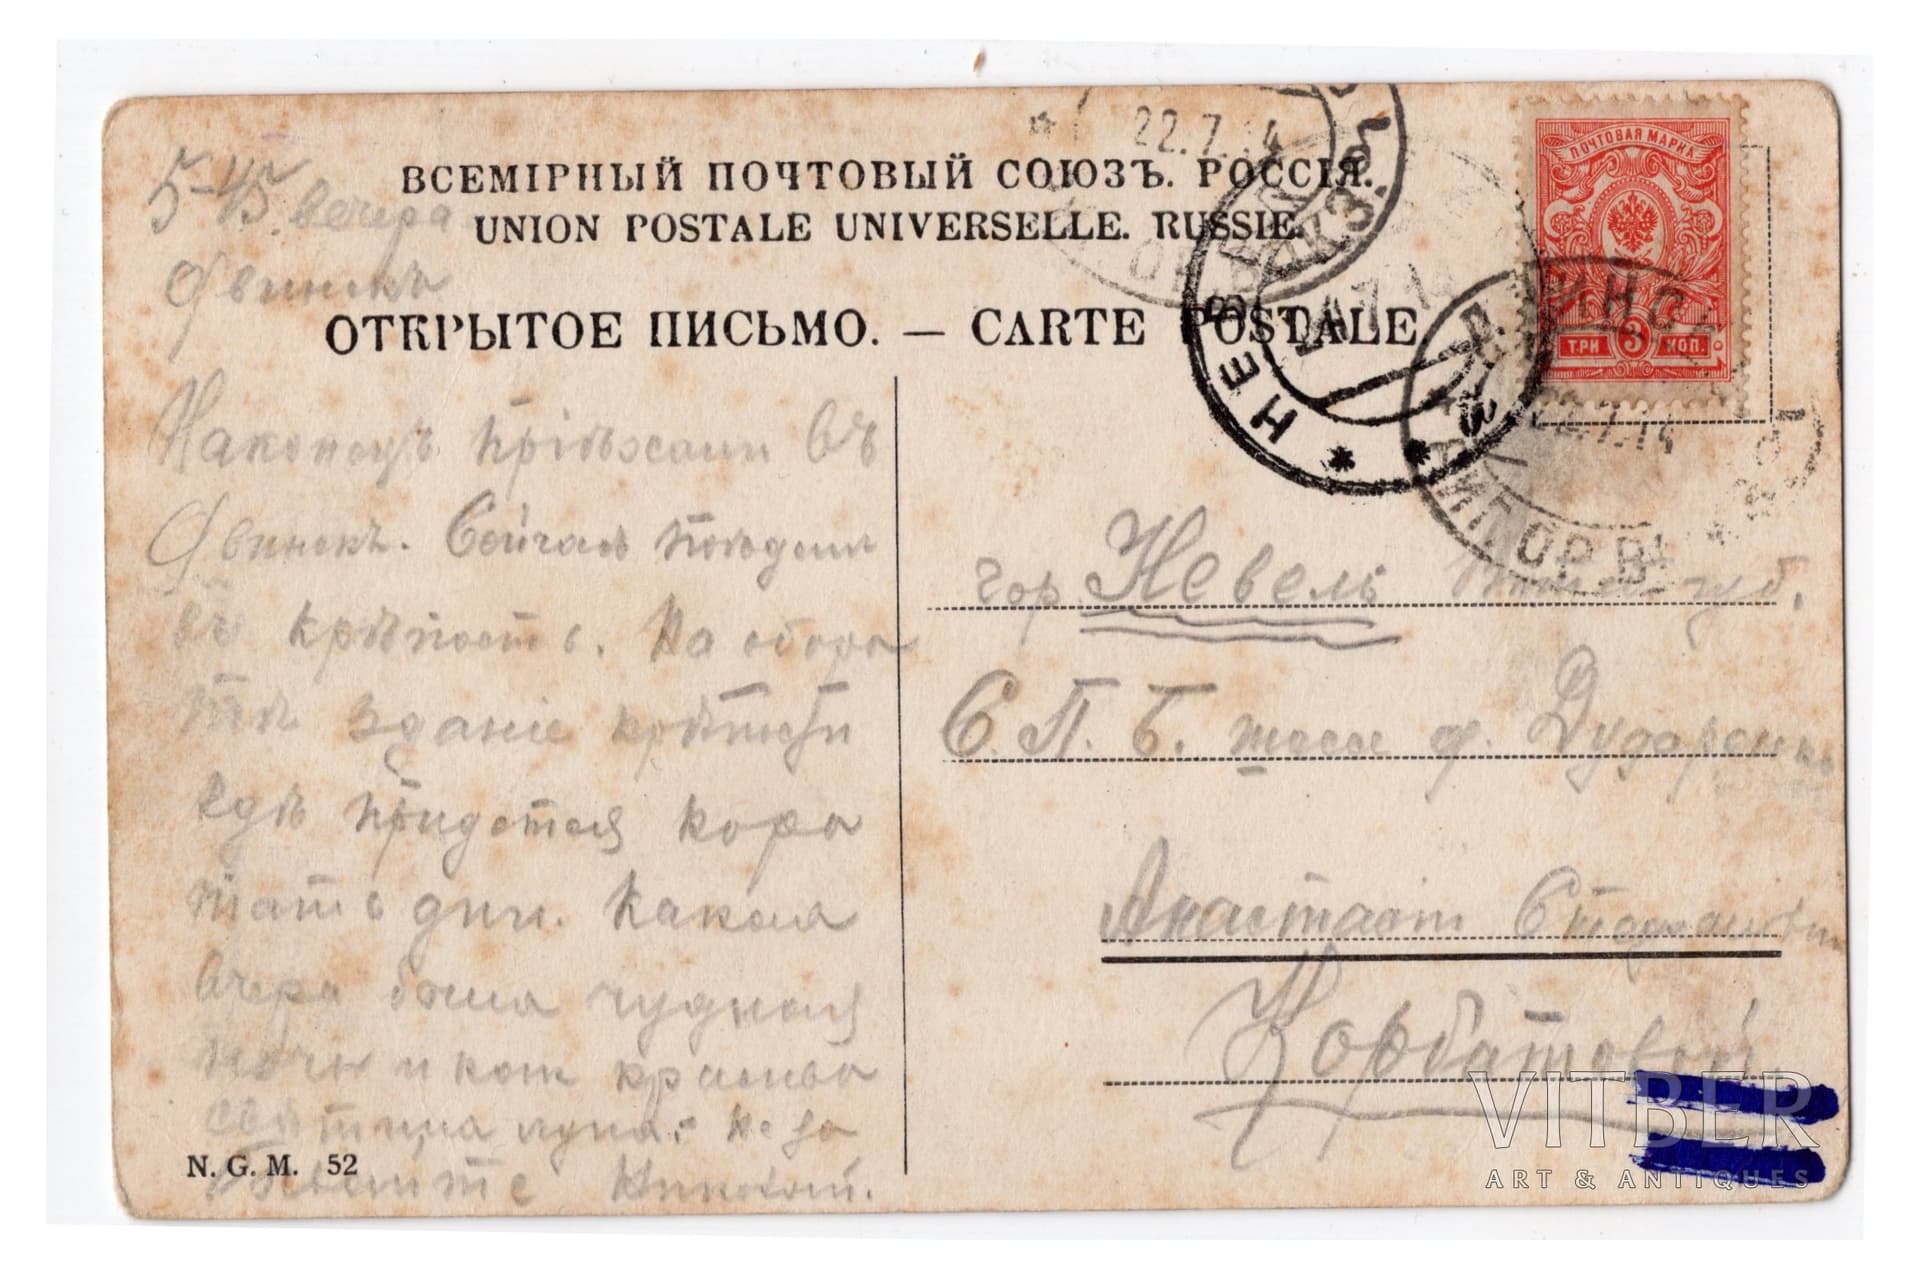 22.7.14
ВСЕМІРНЫЙ ПОЧТОВЫЙ СОЮЗЪ. РОССІЯ.
UNION POSTALE UNIVERSELLE. RUSSIE.
ОТКРЫТОЕ ПИСЬМО. — CARTE POSTALE
ПОЧТОВАЯ МАРКА
ТРИ 3 КОП.
ДВИНСК
22.7.14
НЕВ
5-45 вечера
Двинскъ
Наконецъ пріѣхали въ
Двинскъ. Сейчасъ поѣдемъ
въ крѣпость. На оборо
тѣ зданіе крѣпости
кдѣ придется коро
тать дни. Какая
вчера была чудная
ночь и как красиво
свѣтила луна. Не за
бывайте Николай.
гор Невель Вит. губ.
С.П.Б. шоссе ф. Дударенко
Анастасіи Стефановн
Корбатовой
N. G. M. 52
VITBER
ART & ANTIQUES